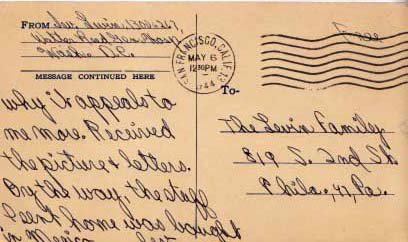 FROM Irv. Levin 1302-267
Walter Reed Gen. Hosp.
Wash. D.C.
MESSAGE CONTINUED HERE
why it appeals to
me more. Received
the picture & letters.
By the way, the stuff
I sent home was bought
in Mexico
SAN FRANCISCO, CALIF.
MAY 6
12 30 PM
1944
To-
The Levin Family
819 S. 2nd St.
Phila., 47, Pa.